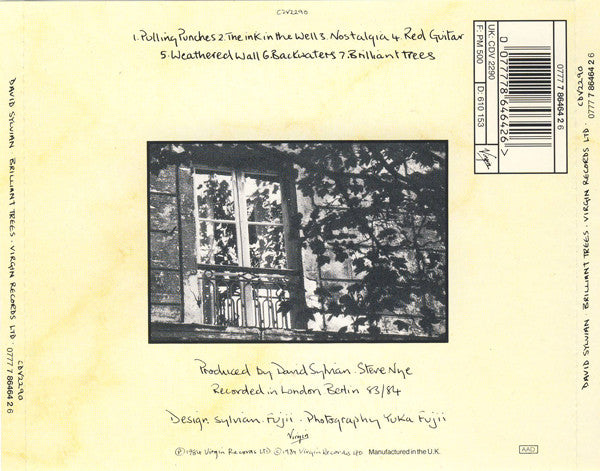 CDV2290
1. Pulling Punches 2. The ink in the Well 3. Nostalgia 4. Red Guitar
5. Weathered Wall 6. Backwaters 7. Brilliant Trees
UK: CDV 2290
F: PM 500
D: 610 153
0 077778 646426 >
0777 7 86464 2 6
Virgin
DAVID SYLVIAN BRILLIANT TREES · VIRGIN RECORDS LTD CDV2290 0777 7 86464 2 6
DAVID SYLVIAN BRILLIANT TREES · VIRGIN RECORDS LTD CDV2290 0777 7 86464 2 6
Produced by David Sylvian · Steve Nye
Recorded in London Berlin 83/84
Design Sylvian · Fujii · Photography Yuka Fujii
Virgin
Ⓟ 1984 Virgin Records LTD © 1984 Virgin Records LTD. Manufactured in the U.K.
AAD